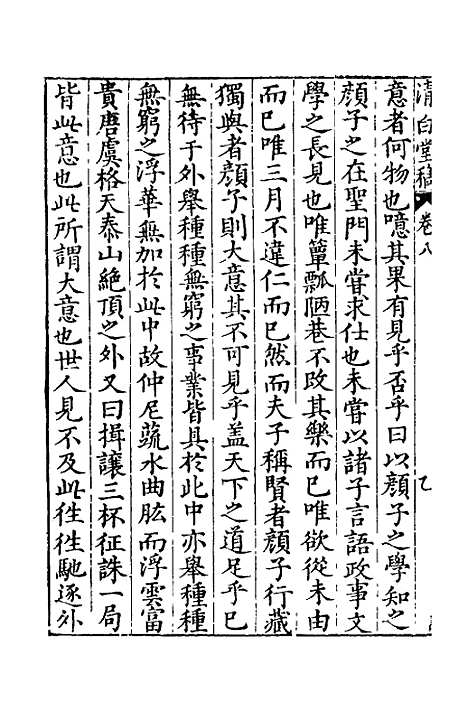 清白堂稿 卷八
意者何物也噫其果有見乎否乎曰以顔子之學知之
顔子之在聖門未嘗求仕也未嘗以諸子言語政事文
學之長見也唯簞瓢陋巷不改其樂而已唯欲從未由
而已唯三月不違仁而已然而夫子稱賢者顔子行藏
獨與者顔子則大意其不可見乎盖天下之道足乎已
無待于外舉種種無窮之事業皆具於此中亦舉種種
無窮之浮華無加於此中故仲尼蔬水曲肱而浮雲富
貴唐虞格天泰山絶頂之外又曰揖讓三杯征誅一局
皆此意也此所謂大意也世人見不及此徃徃馳逐外